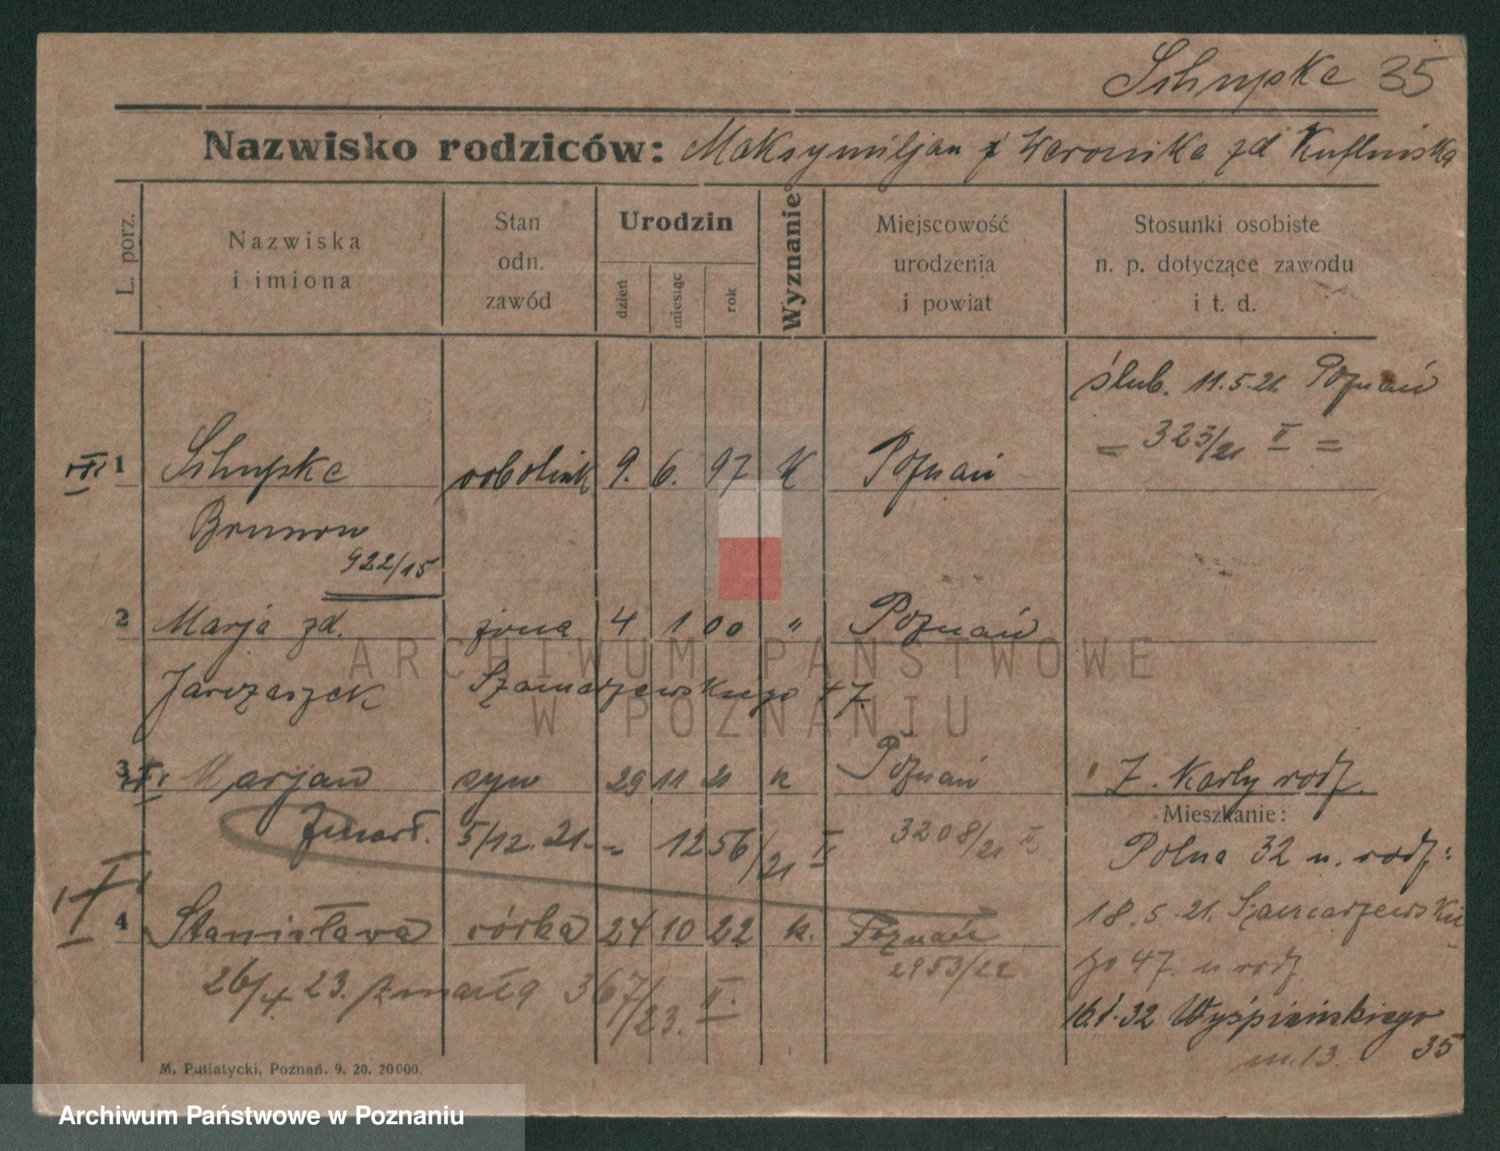 Schupke 35
Nazwisko rodziców: Maksymiljan i Weronika zd Kuflińska
L. porz.
Nazwiska i imiona
Stan odn. zawód
Urodzin
dzień
miesiąc
rok
Wyznanie
Miejscowość urodzenia i powiat
Stosunki osobiste n. p. dotyczące zawodu i t. d.
ślub. 11.5.21. Poznań
= 325/21 II =
1 Schupke robotnik 9. 6. 97 K Poznań
Brunon
922/15
2 Marja zd. żona 4 1 00 " Poznań
Jarczaszek Szamarzewskiego 47.
3 Marjan syn 29 11 21 k Poznań Z. Karty rodz.
Zmarł. 5/12. 21. - 1256/21 II 3208/21 II
Mieszkanie:
Polna 32 u. rodz:
18.5.21. Szamarzewskie
4 Stanisława córka 24 10 22 k. Poznań
2953/22
go 47. u rodz.
26/4. 23. zmarła 367/23. II.
16.1.32 Wyśpiańskiego
35
m. 13.
M. Putiatycki, Poznań. 9. 20. 20000.
ARCHIWUM PAŃSTWOWE
W POZNANIU
Archiwum Państwowe w Poznaniu